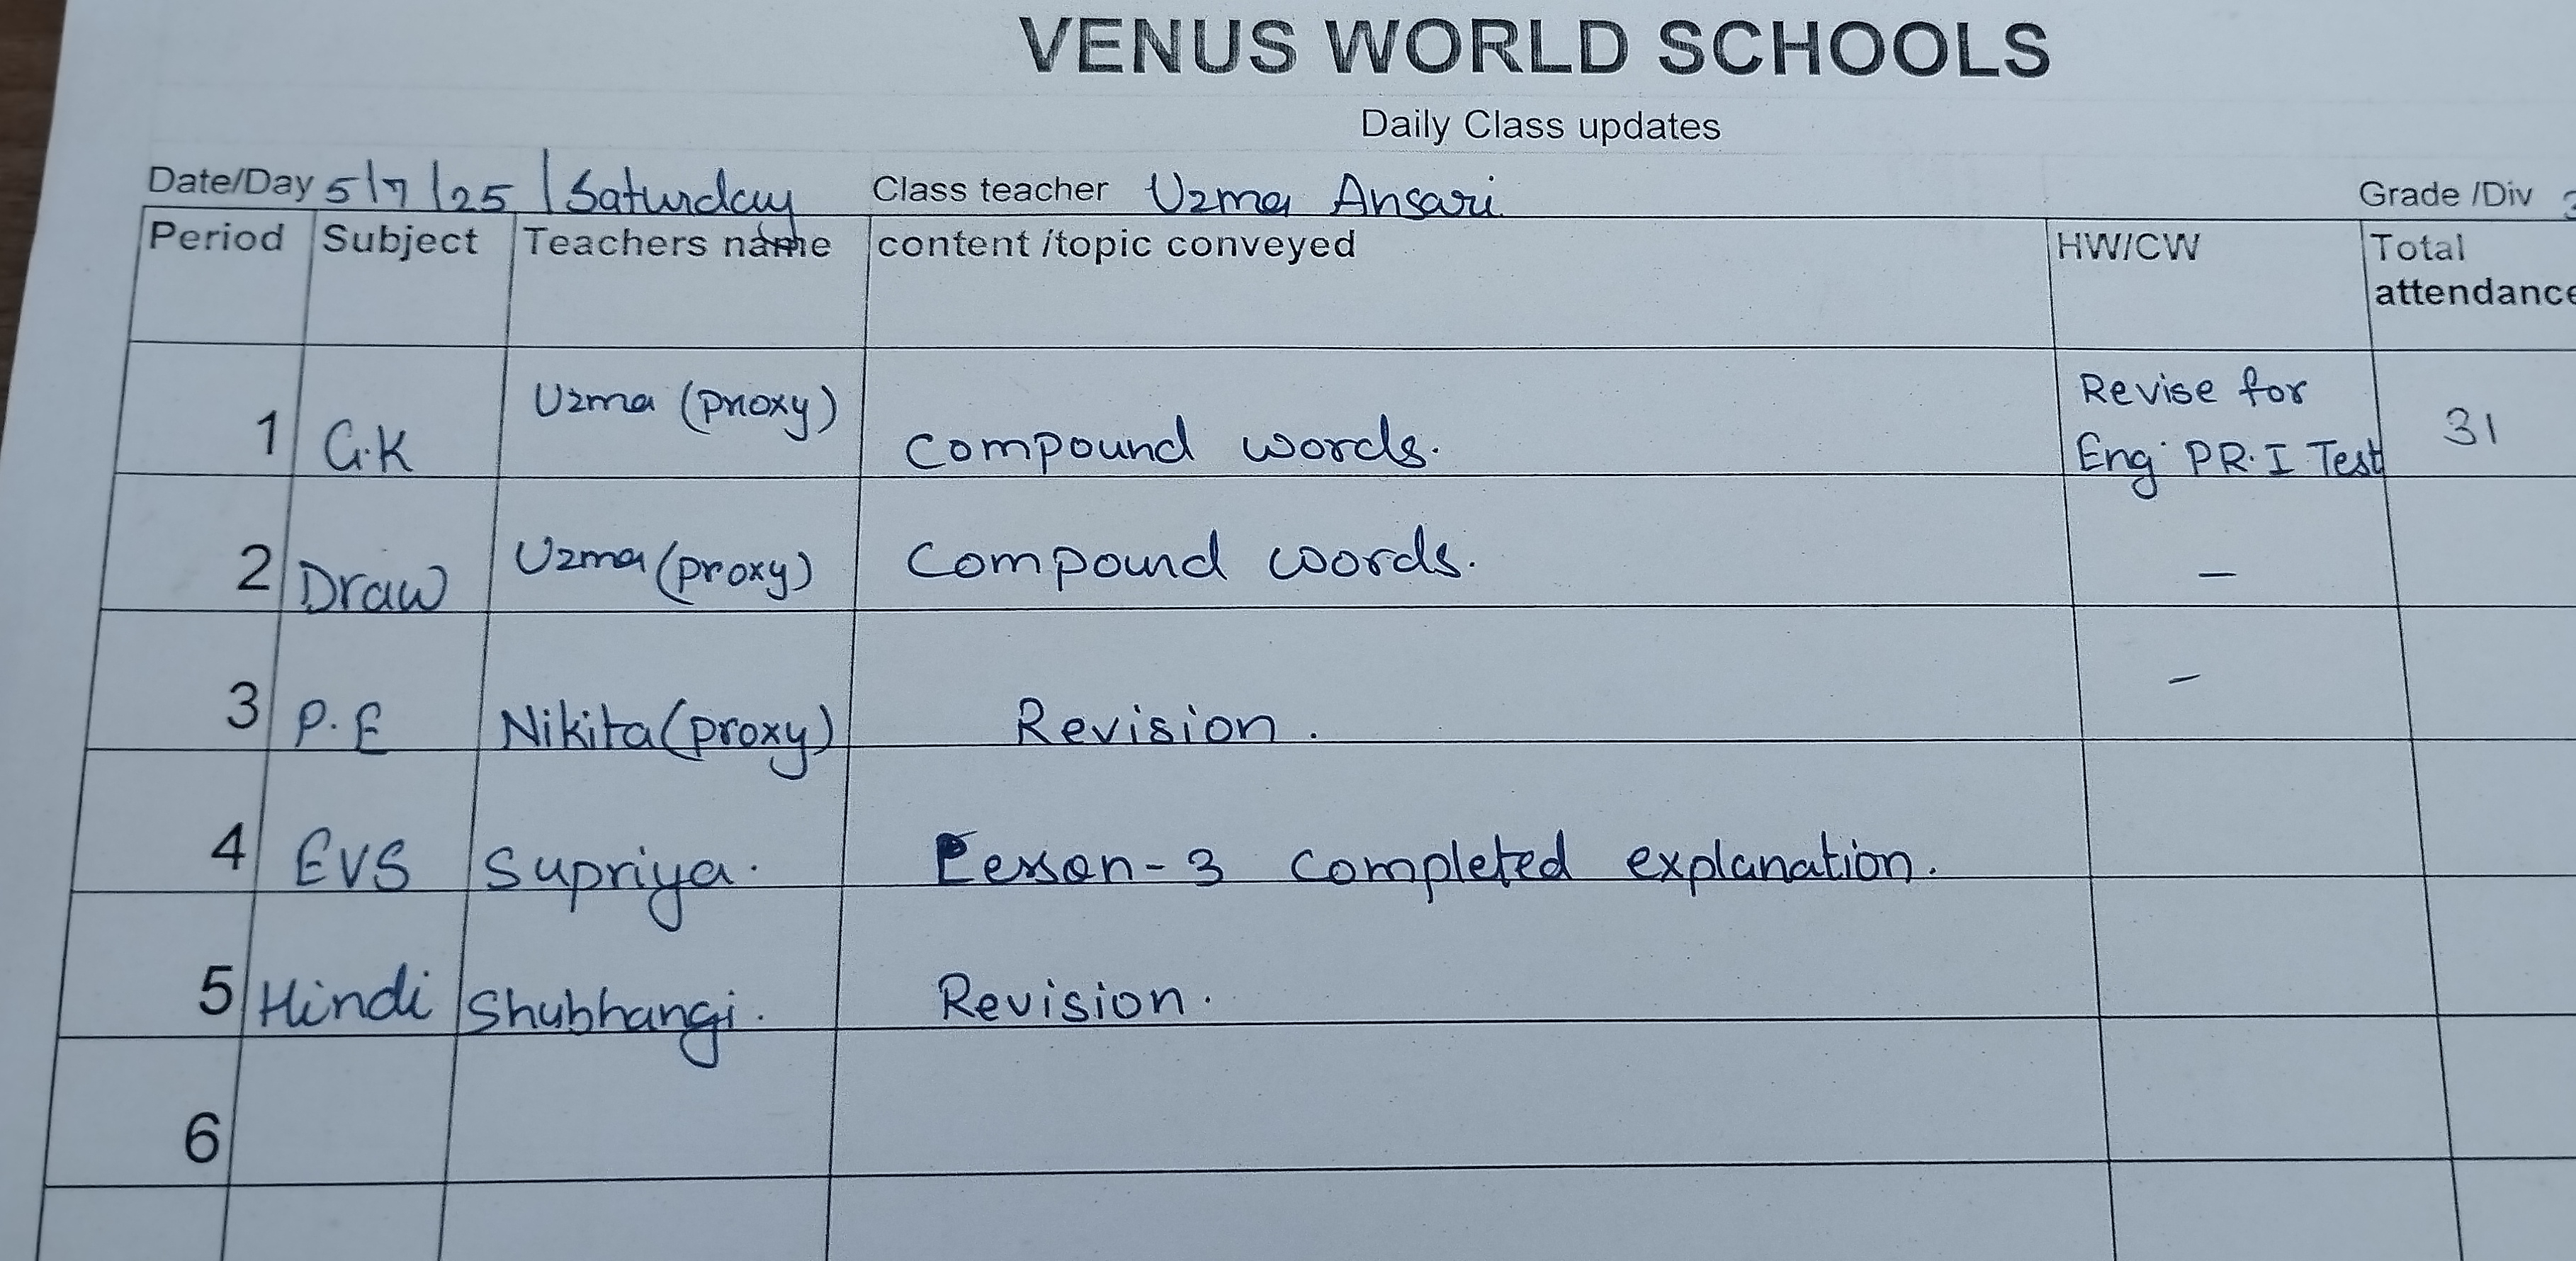 VENUS WORLD SCHOOLS
Daily Class updates
Date/Day 5/7/25 | Saturday Class teacher Uzma Ansari Grade /Div
Period Subject Teachers name content /topic conveyed HW/CW Total attendance
1 G.K Uzma (proxy) Compound words. Revise for Eng PR.I Test 31
2 Draw Uzma (proxy) Compound words. –
3 P.E Nikita (proxy) Revision. –
4 EVS Supriya. Lesson-3 completed explanation.
5 Hindi Shubhangi. Revision.
6